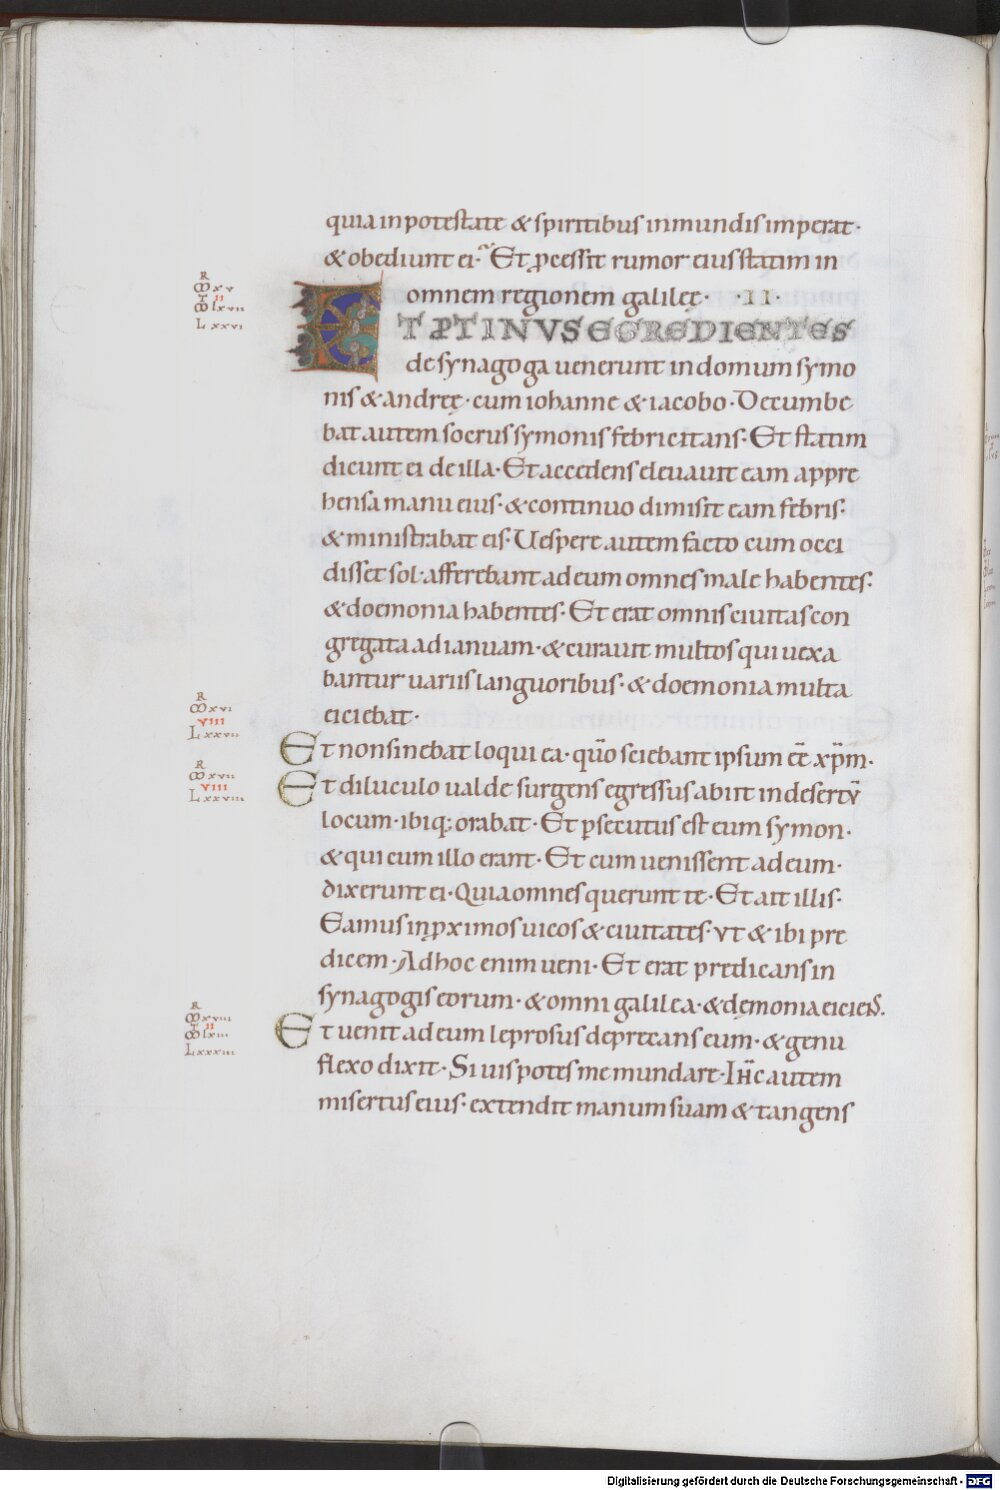 quia in potestate & spiritibus inmundis imperat·
& obediunt ei· Et ꝓcessit rumor eius statim in
omnem regionem galileę· ·II·
R
ꝎXV
II
Ꝏ lxvii
L xxvi
ET PTINVS EGREDIENTES
de synagoga uenerunt in domum symo
nis & andreę· cum iohanne & iacobo· Decumbe
bat autem socrus symonis febricitans· Et statim
dicunt ei de illa· Et accedens eleuauit eam appre
hensa manu eius· & continuo dimisit eam febris·
& ministrabat eis· Uespere autem facto cum occi
disset sol· afferebant ad eum omnes male habentes·
& doemonia habentes· Et erat omnis ciuitas con
gregata ad ianuam· & curauit multos qui uexa
bantur uariis languoribus· & doemonia multa
eiciebat·
R
Ꝏ xvi
VIII
L xxvii
Et non sinebat loqui ea· qūo sciebant ipsum eē xp̄m·
R
Ꝏ xvii
VIII
L xxviii
Et diluculo ualde surgens egressus abiit in desertū
locum· ibiq; orabat· Et ꝓsecutus est eum symon·
& qui cum illo erant· Et cum uenissent ad eum·
dixerunt ei· Quia omnes querunt te· Et ait illis·
Eamus in ꝓximos uicos & ciuitates· vt & ibi pre
dicem· Ad hoc enim ueni· Et erat predicans in
synagogis eorum· & omni galilea· & dęmonia eiciens·
R
Ꝏ xviii
II
Ꝏ lxiii
L xxxiii
Et uenit ad eum leprosus deprecans eum· & genu
flexo dixit· Si uis potes me mundare· Ih̄c autem
misertus eius· extendit manum suam & tangens
Digitalisierung gefördert durch die Deutsche Forschungsgemeinschaft - DFG